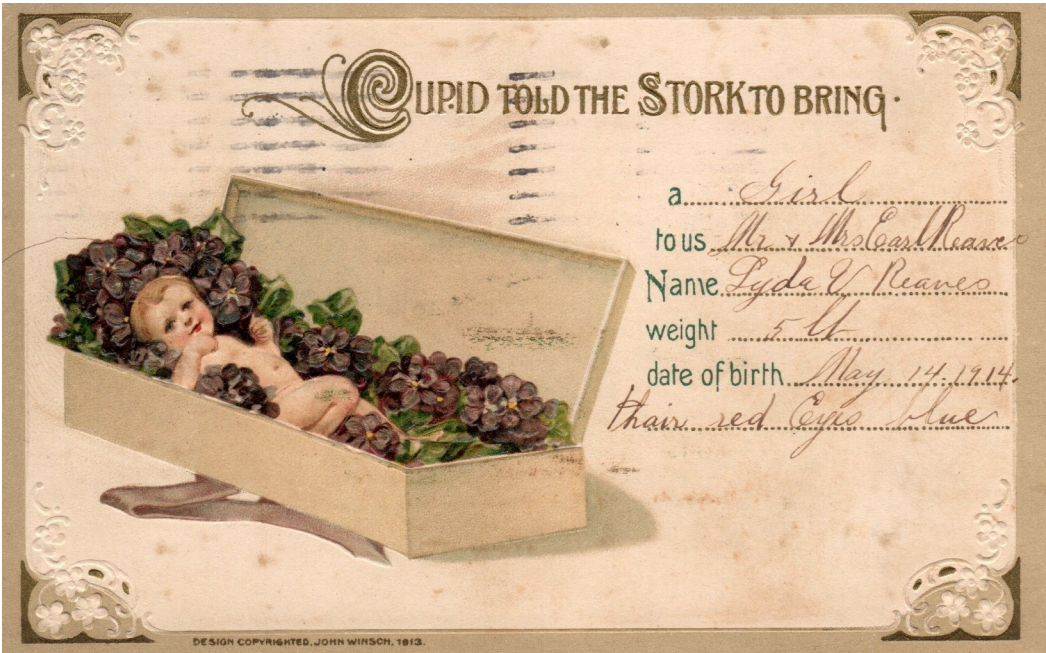 CUPID TOLD THE STORK TO BRING.
a Girl
to us Mr. & Mrs Earl Reaves
Name Lyda V Reaves
weight 5 lb
date of birth May 14. 1914.
hair red Eyes blue
DESIGN COPYRIGHTED, JOHN WINSCH, 1913.